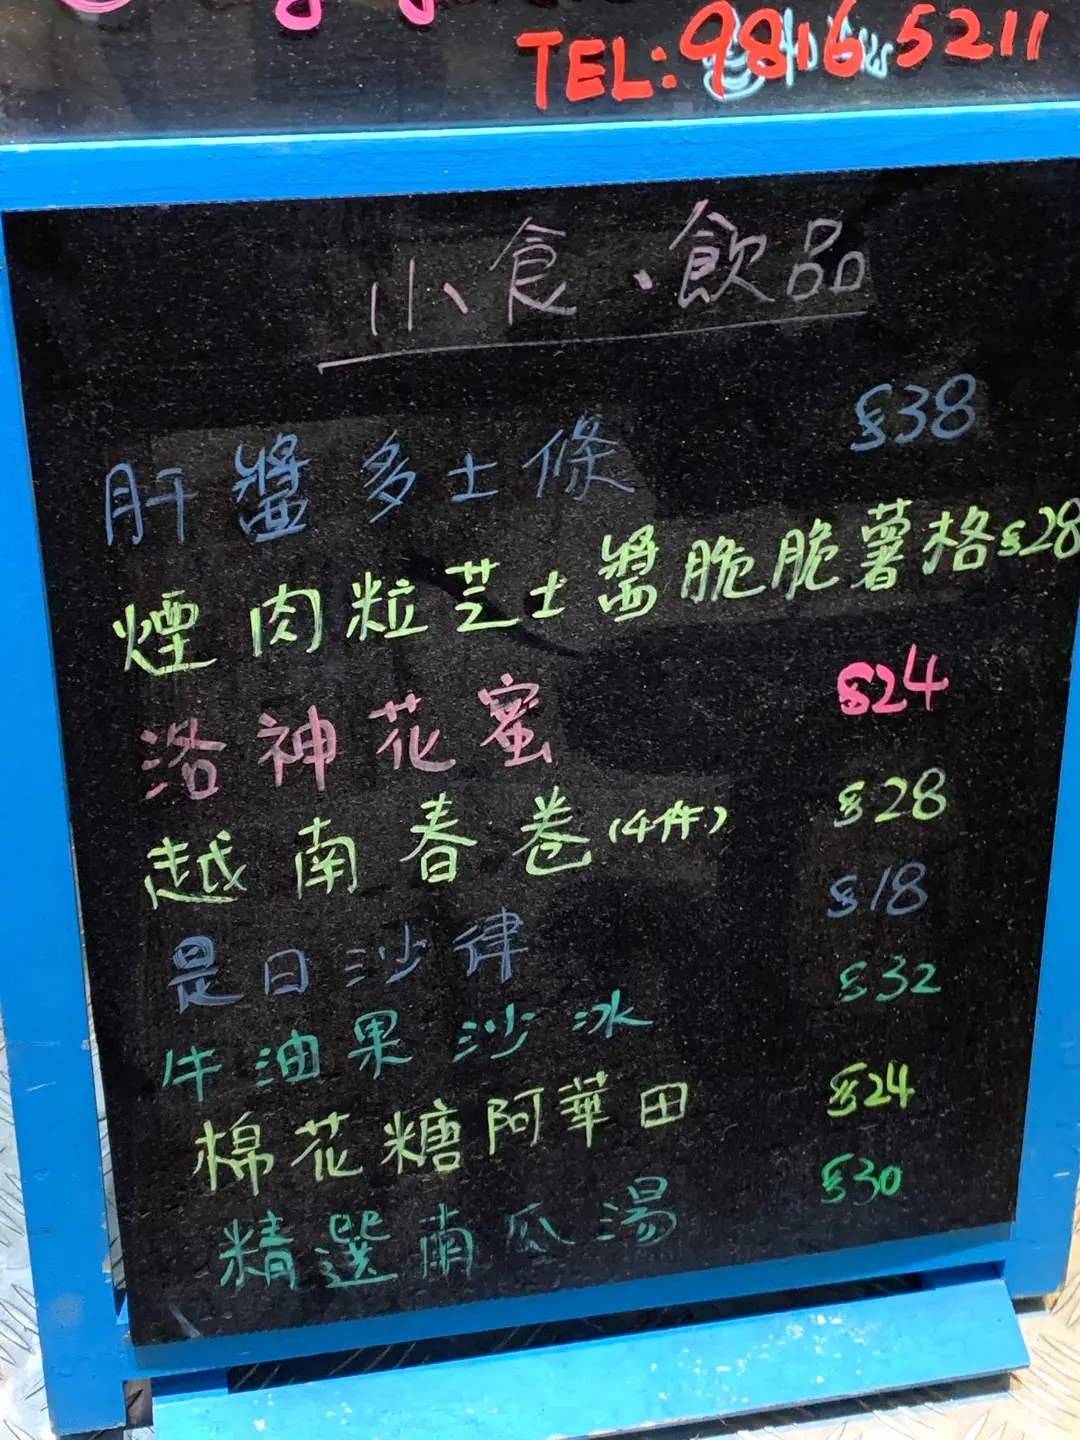 TEL: 98165211
小食、飲品
肝醬多士條 $38
煙肉粒芝士醬脆脆薯格 $28
洛神花蜜 $24
越南春卷(4件) $28
是日沙律 $18
牛油果沙冰 $32
棉花糖阿華田 $24
精選南瓜湯 $30